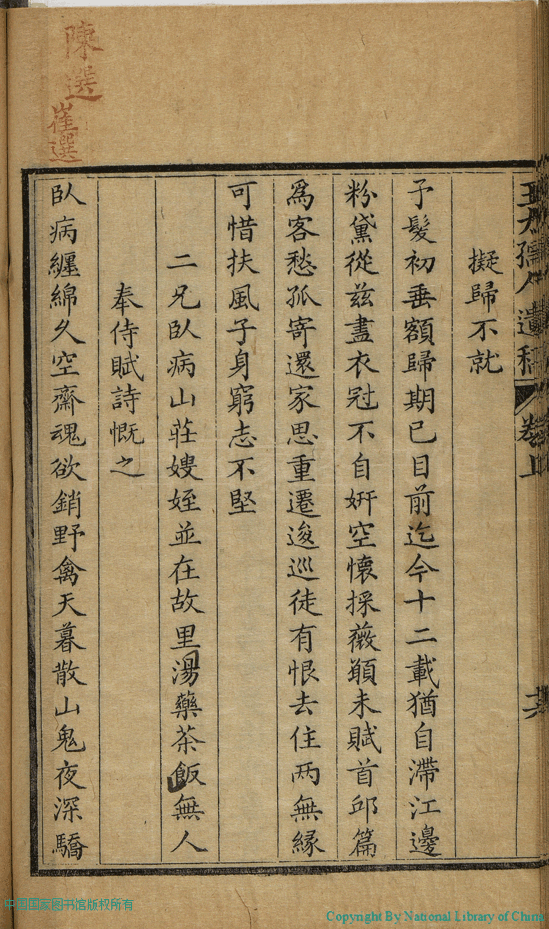 擬歸不就
予髮初垂額歸期已目前迄今十二載猶自滯江邊
粉黛從玆盡衣冠不自姸空懷採薇顊未賦首邱篇
爲客愁孤寄還家思重遷逡巡徒有恨去住两無緣
可惜扶風子身窮志不堅
二兄臥病山莊嫂姪並在故里湯藥茶飯無人
奉侍賦詩慨之
臥病纏綿久空齋魂欲銷野禽天暮散山鬼夜深驕
陳選
崔選
中国国家图书馆版权所有
Copyright By National Library of China